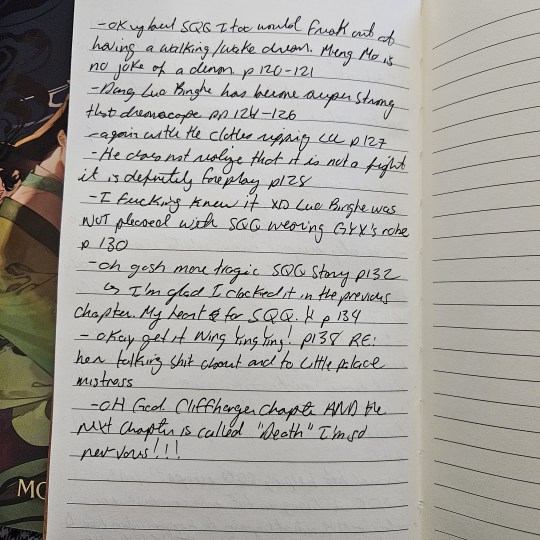 -okay but SQQ I too would freak out at
having a walking/wake dream. Meng Mo is
no joke of a demon. p120-121
-Dang Luo Binghe has become super strong
that dreamscape pp 124-126
-again with the clothes ripping LLL p127
-He does not realize that it is not a fight
it is definitely foreplay p128
-I fucking knew it XD Luo Binghe was
NOT pleased with SQQ wearing GYX's robe
p 130
-oh gosh more tragic SQQ story p132
↳ I'm glad I clocked it in the previous
chapter. My heart for SQQ. p 134
-okay get it Ning Ying Ying! p138 RE:
her talking shit about and to Little Palace
mistress
-OH God. Cliffhanger chapter AND the
next chapter is called "Death" I'm so
nervous!!!
MO